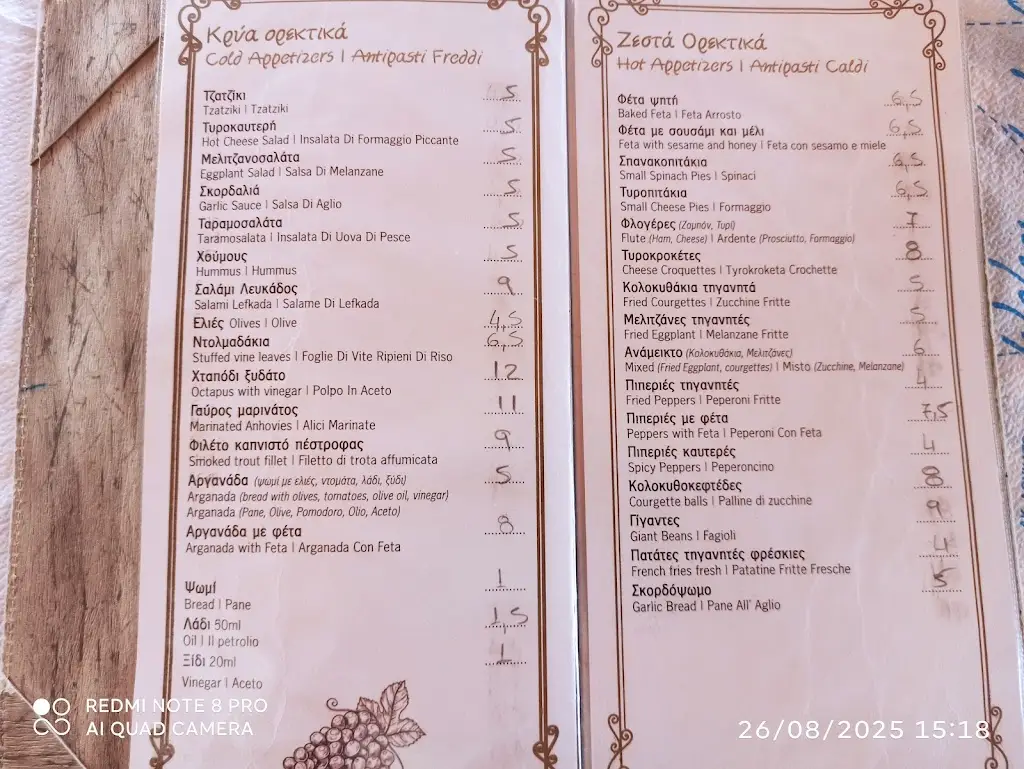 Κρύα ορεκτικά
Cold Appetizers | Antipasti Freddi
Τζατζίκι 5
Tzatziki | Tzatziki
Τυροκαυτερή 5
Hot Cheese Salad | Insalata Di Formaggio Piccante
Μελιτζανοσαλάτα 5
Eggplant Salad | Salsa Di Melanzane
Σκορδαλιά 5
Garlic Sauce | Salsa Di Aglio
Ταραμοσαλάτα 5
Taramosalata | Insalata Di Uova Di Pesce
Χούμους 5
Hummus | Hummus
Σαλάμι Λευκάδος 9
Salami Lefkada | Salame Di Lefkada
Ελιές Olives | Olive 4,5
Ντολμαδάκια 6,5
Stuffed vine leaves | Foglie Di Vite Ripieni Di Riso
Χταπόδι ξυδάτο 12
Octapus with vinegar | Polpo In Aceto
Γαύρος μαρινάτος 11
Marinated Anhovies | Alici Marinate
Φιλέτο καπνιστό πέστροφας 9
Smoked trout fillet | Filetto di trota affumicata
Αργανάδα (ψωμί με ελιές, ντομάτα, λάδι, ξύδι) 5
Arganada (bread with olives, tomatoes, olive oil, vinegar)
Arganada (Pane, Olive, Pomodoro, Olio, Aceto)
Αργανάδα με φέτα 8
Arganada with Feta | Arganada Con Feta
Ψωμί 1
Bread | Pane
Λάδι 50ml 1,5
Oil | Il petrolio
Ξίδι 20ml 1
Vinegar | Aceto
Ζεστά Ορεκτικά
Hot Appetizers | Antipasti Caldi
Φέτα ψητή 6,5
Baked Feta | Feta Arrosto
Φέτα με σουσάμι και μέλι 6,5
Feta with sesame and honey | Feta con sesamo e miele
Σπανακοπιτάκια 6,5
Small Spinach Pies | Spinaci
Τυροπιτάκια 6,5
Small Cheese Pies | Formaggio
Φλογέρες (Ζαμπόν, Τυρί) 7
Flute (Ham, Cheese) | Ardente (Prosciutto, Formaggio)
Τυροκροκέτες 8
Cheese Croquettes | Tyrokroketa Crochette
Κολοκυθάκια τηγανητά 5
Fried Courgettes | Zucchine Fritte
Μελιτζάνες τηγανητές 5
Fried Eggplant | Melanzane Fritte
Ανάμεικτο (Κολοκυθάκια, Μελιτζάνες) 6
Mixed (Fried Eggplant, courgettes) | Misto (Zucchine, Melanzane)
Πιπεριές τηγανητές 4
Fried Peppers | Peperoni Fritte
Πιπεριές με φέτα 7,5
Peppers with Feta | Peperoni Con Feta
Πιπεριές καυτερές 4
Spicy Peppers | Peperoncino
Κολοκυθοκεφτέδες 8
Courgette balls | Palline di zucchine
Γίγαντες 9
Giant Beans | Fagioli
Πατάτες τηγανητές φρέσκιες 4
French fries fresh | Patatine Fritte Fresche
Σκορδόψωμο 5
Garlic Bread | Pane All' Aglio
REDMI NOTE 8 PRO
AI QUAD CAMERA
26/08/2025 15:18